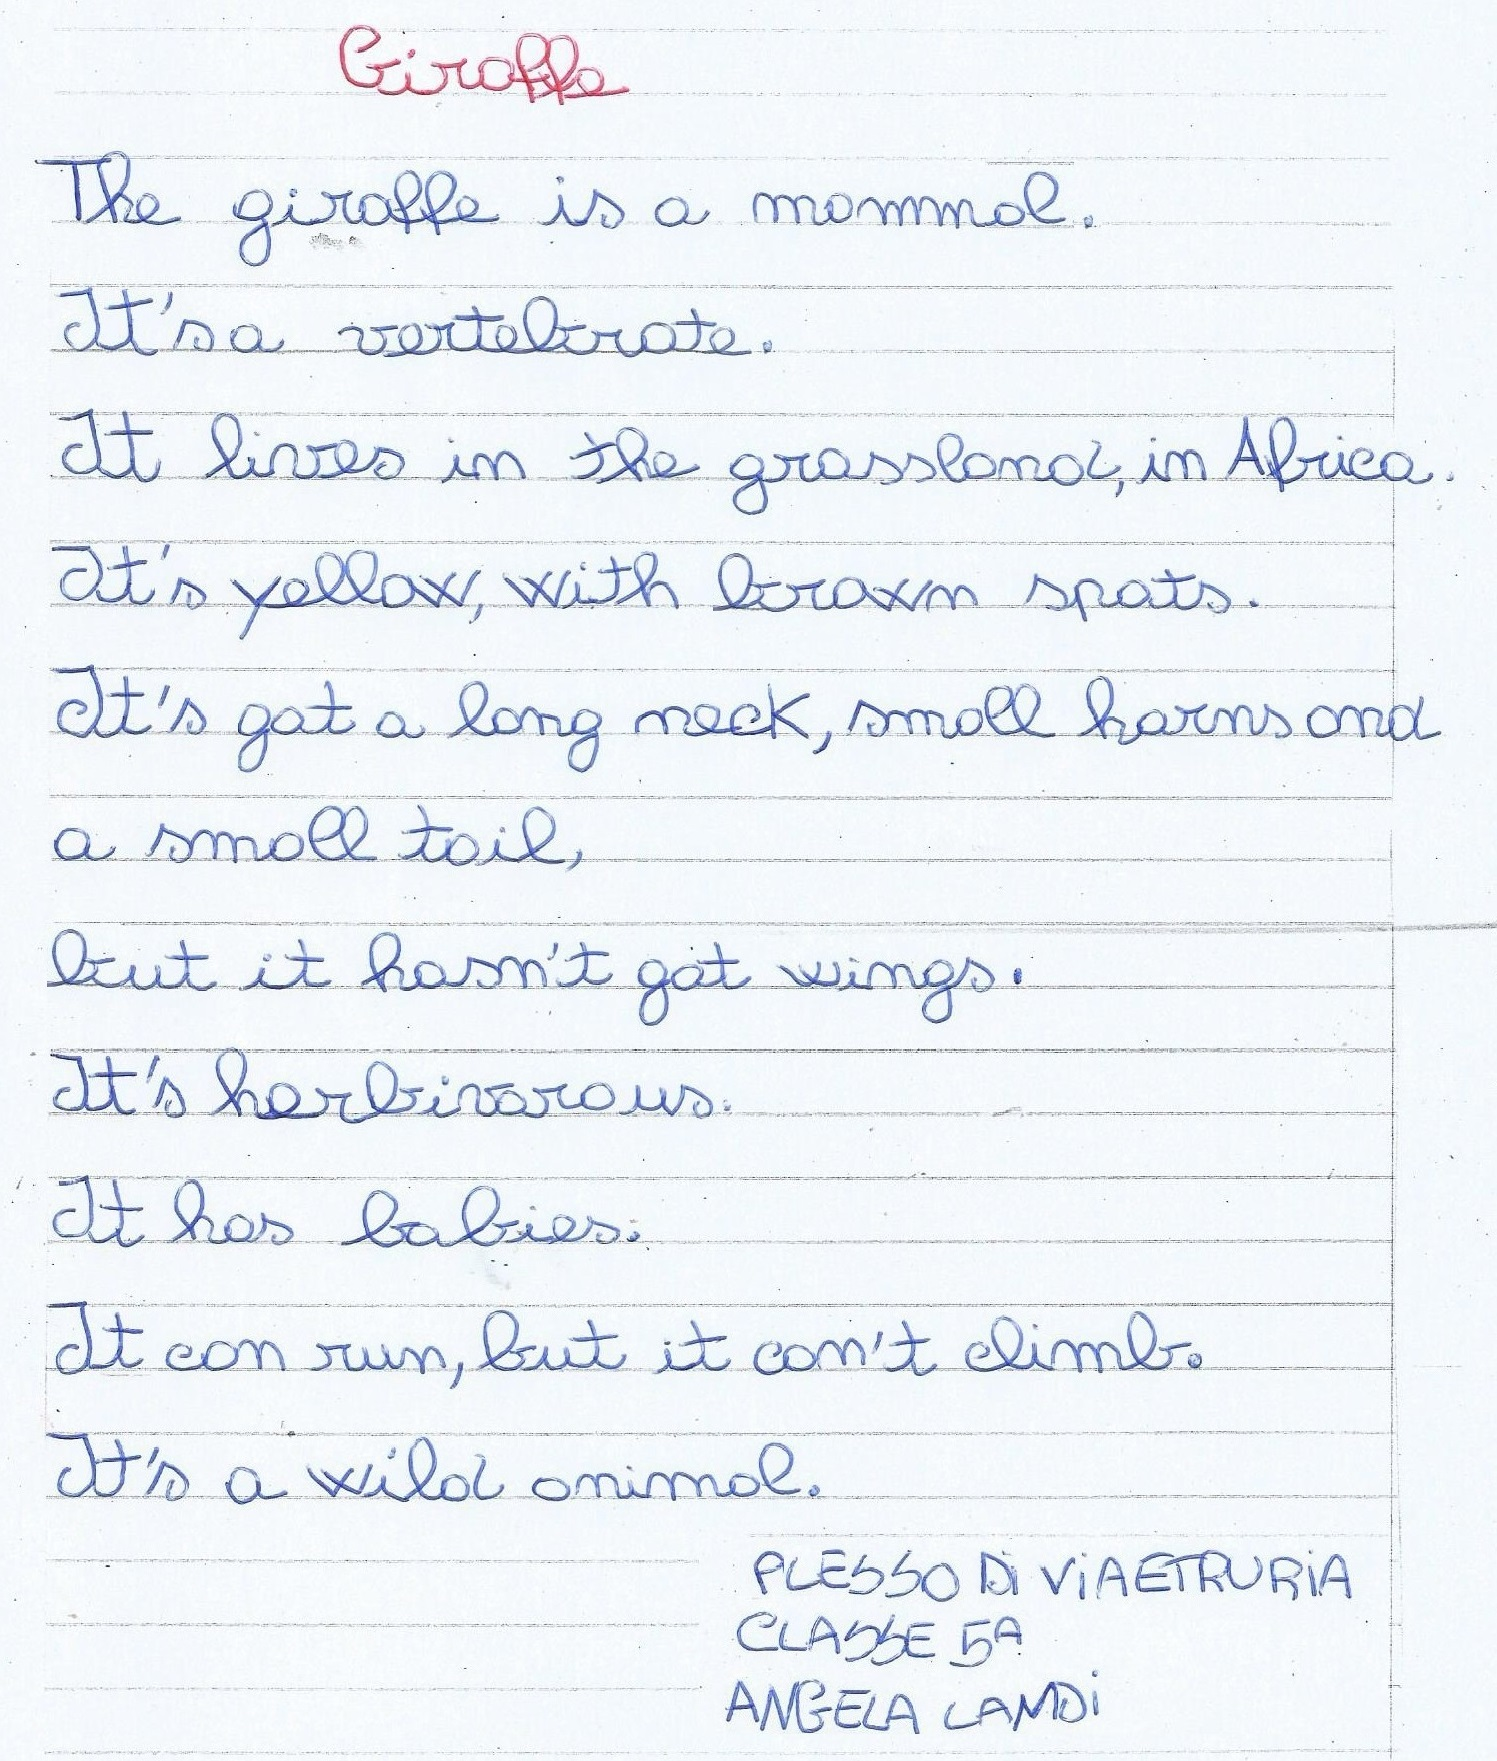 Giraffe
The giraffe is a mammal.
It's a vertebrate.
It lives in the grassland, in Africa.
It's yellow, with brown spots.
It's got a long neck, small horns and
a small tail,
but it hasn't got wings.
It's herbivorous.
It has babies.
It can run, but it can't climb.
It's a wild animal.
PLESSO Di ViA ETRURiA
CLASSE 5A
ANGELA LANDi